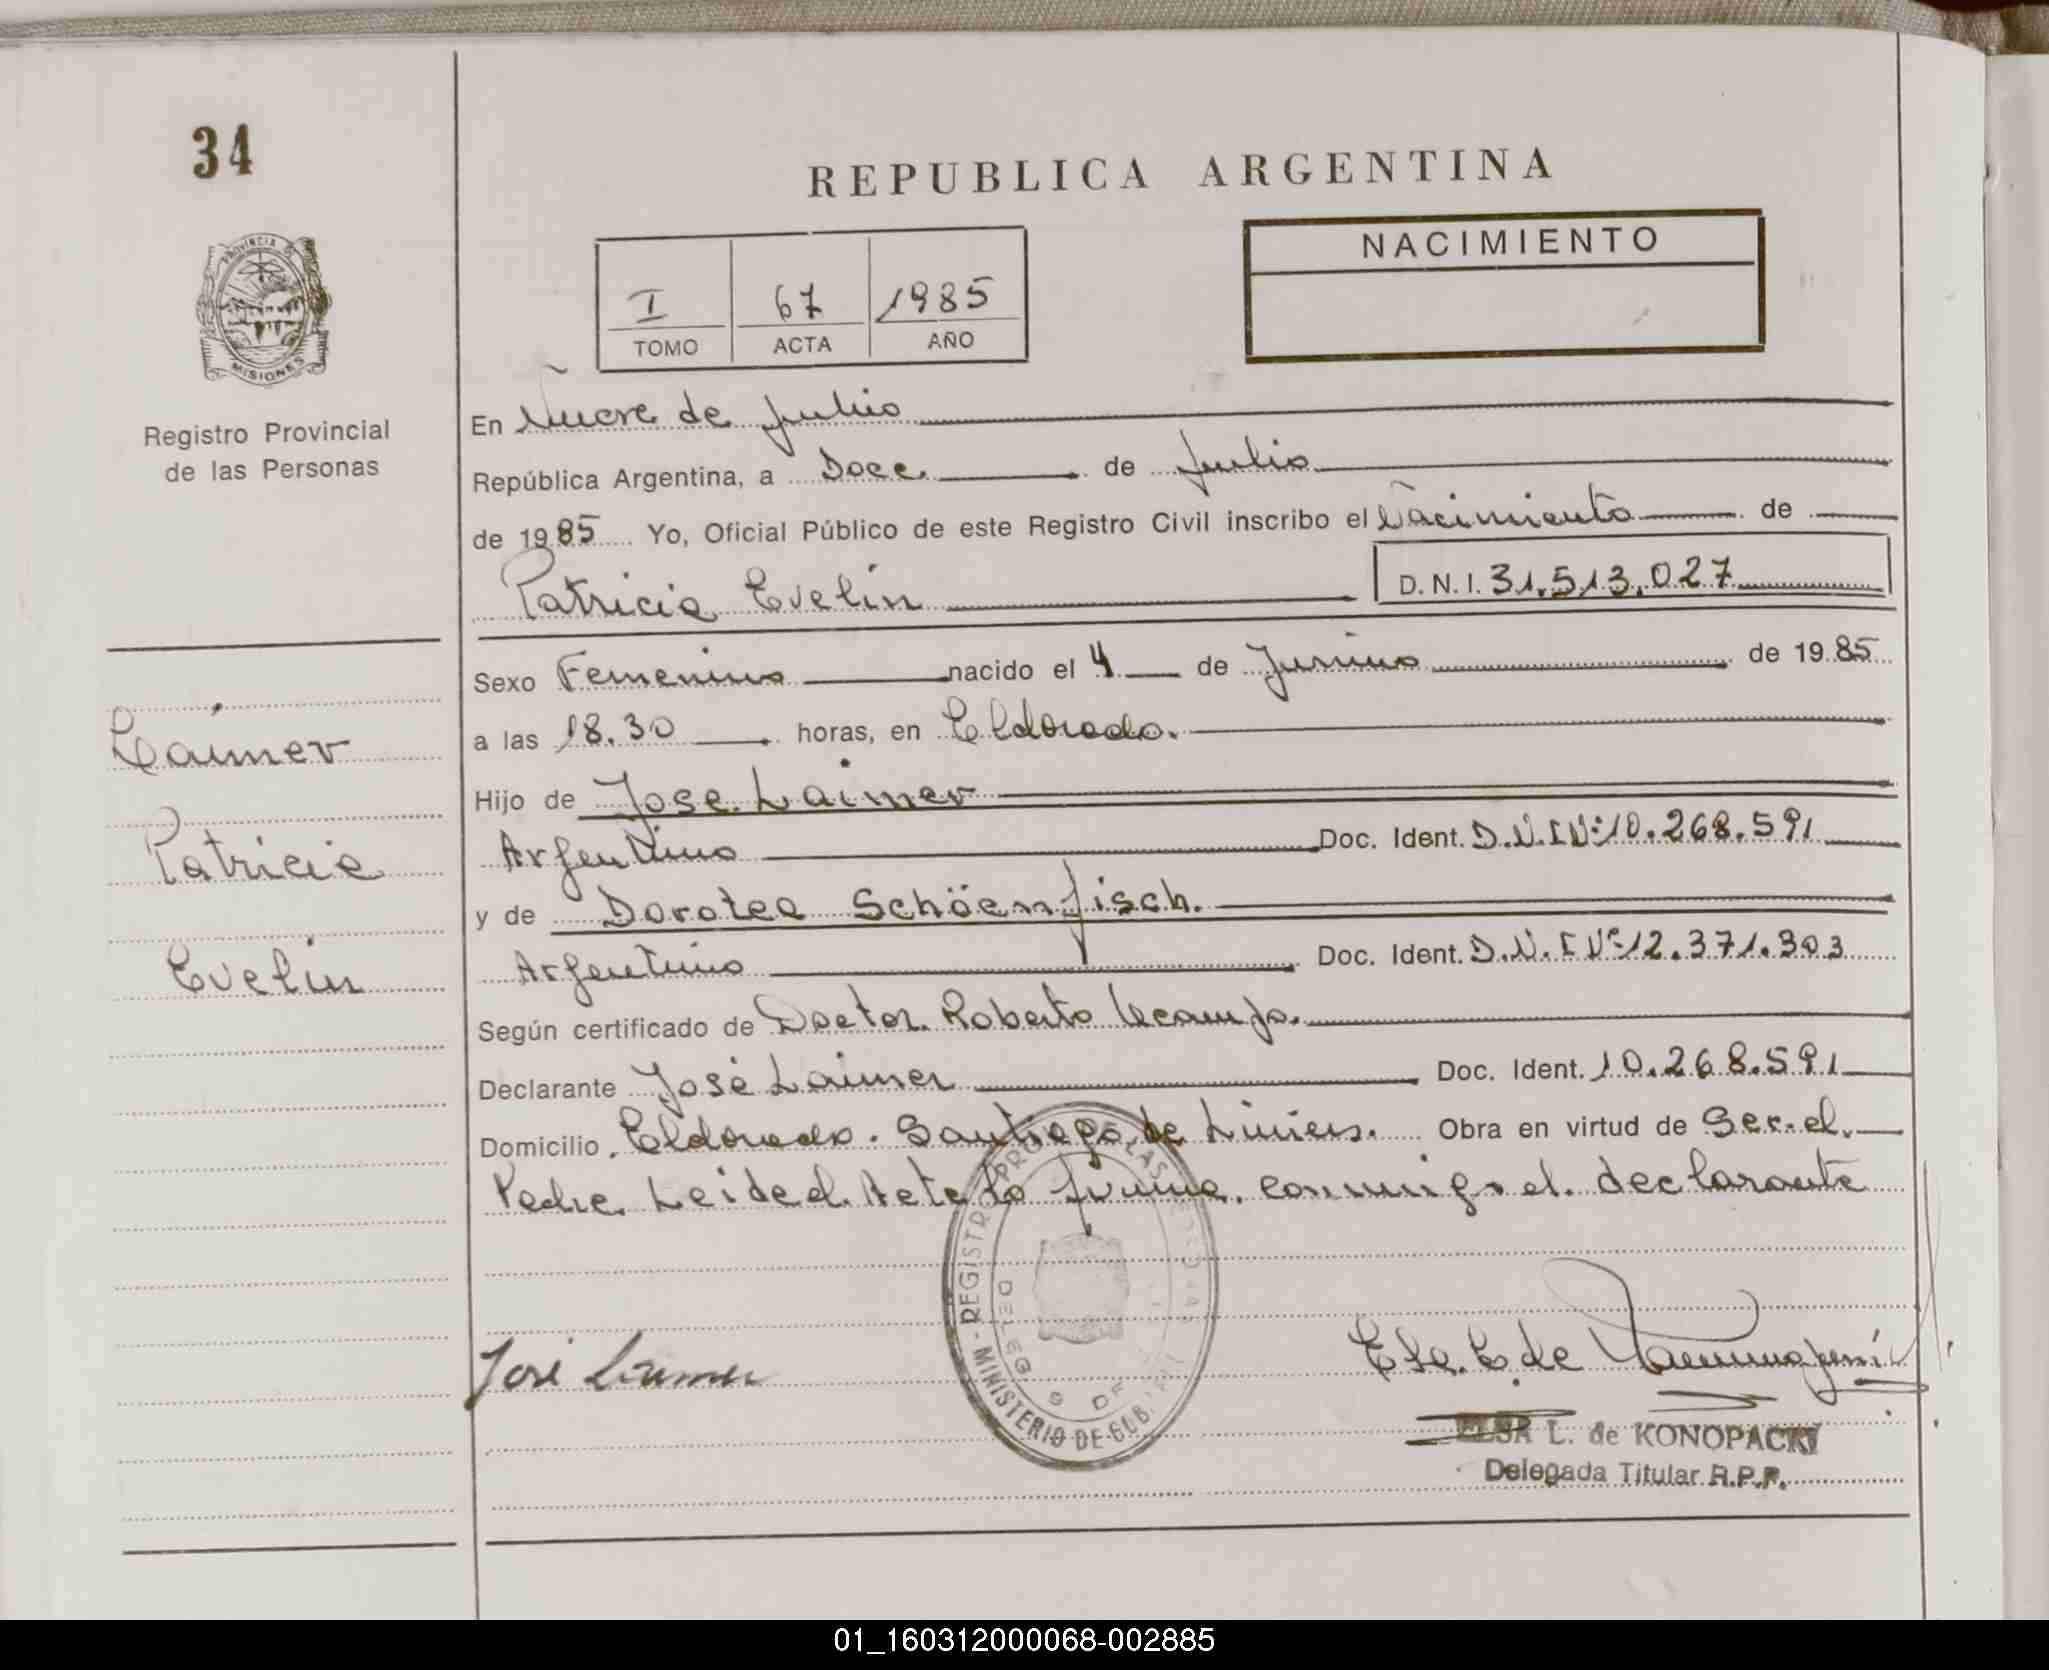 34
PROVINCIA DE
MISIONES
Registro Provincial
de las Personas
Laimer
Patricia
Evelin
REPUBLICA ARGENTINA
I 67 1985
TOMO ACTA AÑO
NACIMIENTO
En Nueve de Julio
República Argentina, a Doce de Julio
de 1985 Yo, Oficial Público de este Registro Civil inscribo el Nacimiento de
Patricia Evelin D.N.I. 31.513.027
Sexo Femenino nacido el 4 de Junio de 1985
a las 18.30 horas, en Eldorado.
Hijo de Jose Laimer
Argentino Doc. Ident. D.N.I Nº 10.268.591
y de Dorotea Schöenfisch.
Argentino Doc. Ident. D.N.I Nº 12.371.303
Según certificado de Doctor Roberto
Declarante José Laimer Doc. Ident. 10.268.591
Domicilio Eldorado. Santiago de Liniers. Obra en virtud de Ser el
Padre Leida el Acta la firma conmigo el declarante
REGISTRO PROV. DE LAS
MINISTERIO DE GOB.
José Laimer
ELSA L. de KONOPACKI
Delegada Titular R.P.P.
01_160312000068-002885